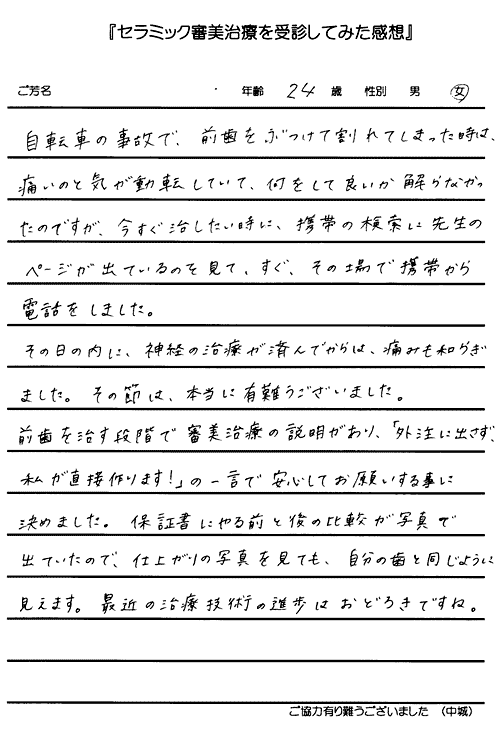 『セラミック審美治療を受診してみた感想』
ご芳名 年齢 24 歳 性別 男 女
自転車の事故で、前歯をぶつけて割れてしまった時は、
痛いのと気が動転していて、何をして良いか解らなかっ
たのですが、今すぐ治したい時に、携帯の検索に先生の
ページが出ているのを見て、すぐ、その場で携帯から
電話をしました。
その日の内に、神経の治療が済んでからは、痛みも和らぎ
ました。その節は、本当に有難うございました。
前歯を治す段階で審美治療の説明があり、「外注に出さず、
私が直接作ります!」の一言で安心してお願いする事に
決めました。保証書にやる前と後の比較が写真で
出ていたので、仕上がりの写真を見ても、自分の歯と同じように
見えます。最近の治療技術の進歩はおどろきですね。
ご協力有り難うございました (中城)